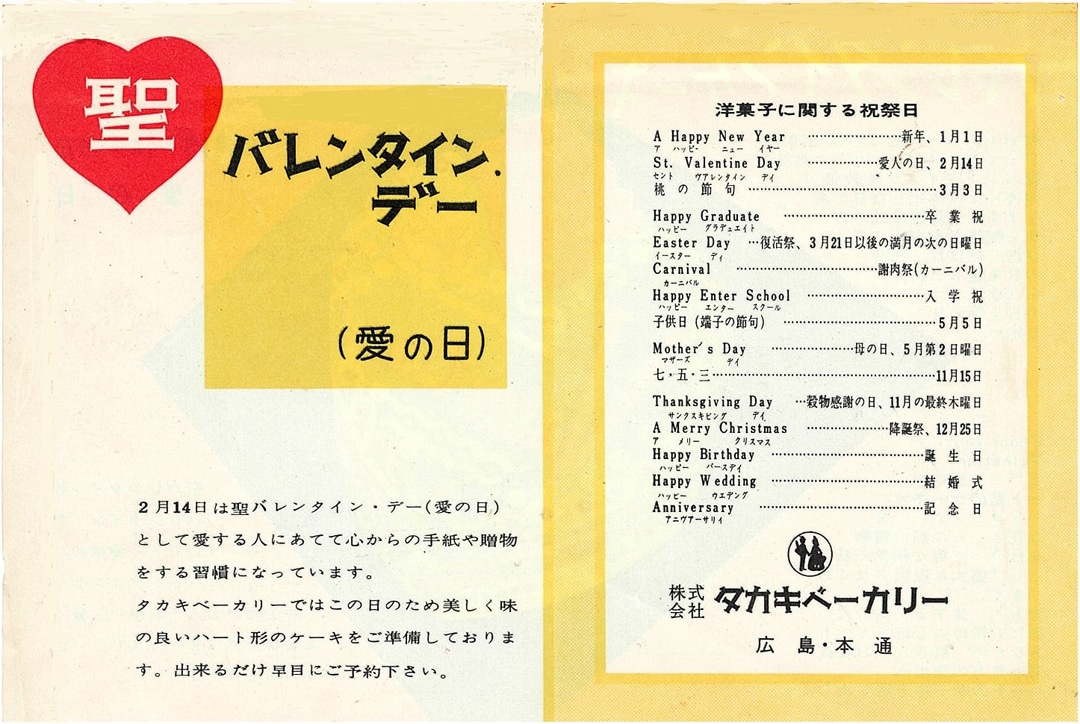 聖
バレンタイン・
デー
(愛の日)
2月14日は聖バレンタイン・デー(愛の日)
として愛する人にあてて心からの手紙や贈物
をする習慣になっています。
タカキベーカリーではこの日のため美しく味
の良いハート形のケーキをご準備しておりま
す。出来るだけ早目にご予約下さい。
洋菓子に関する祝祭日
A Happy New Year ……………新年、1月1日
ア ハッピー ニュー イヤー
St. Valentine Day ……………愛人の日、2月14日
セント ヴアレンタイン デイ
桃の節句……………3月3日
Happy Graduate ……………卒業祝
ハッピー グラデュエイト
Easter Day …復活祭、3月21日以後の満月の次の日曜日
イースター デイ
Carnival ……………謝肉祭(カーニバル)
カーニバル
Happy Enter School ……………入学祝
ハッピー エンター スクール
子供日(端子の節句) ……………5月5日
Mother's Day ……………母の日、5月第2日曜日
マザーズ デイ
七・五・三……………11月15日
Thanksgiving Day …穀物感謝の日、11月の最終木曜日
サンクスキビング デイ
A Merry Christmas ……………降誕祭、12月25日
ア メリー クリスマス
Happy Birthday ……………誕生日
ハッピー バースデイ
Happy Wedding ……………結婚式
ハッピー ウエデング
Anniversary ……………記念日
アニヴアーサリイ
株式会社 タカキベーカリー
広島・本通